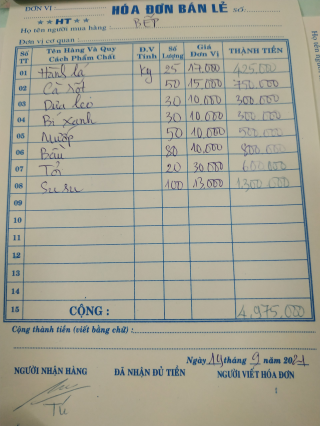 ĐƠN VỊ : HÓA ĐƠN BÁN LẺ
★★ HT ★★
Họ tên người mua hàng : BẾP
Đơn vị cơ quan :
Số TT Tên Hàng Và Quy Cách Phẩm Chất Đ.V Tính Số Lượng Giá Đơn Vị THÀNH TIỀN
01 Hành lá Kg 25 17.000 425.000
02 Cà rốt 50 15.000 750.000
03 Dưa leo 30 10.000 300.000
04 Bí xanh 30 10.000 300.000
05 Mướp 50 10.000 500.000
06 Bầu 80 10.000 800.000
07 Tỏi 20 30.000 600.000
08 Su su 100 13.000 1300.000
09
10
11
12
13
14
15 CỘNG : 4,975,000
Cộng thành tiền (viết bằng chữ) :
Ngày 14 tháng 9 năm 2021
NGƯỜI NHẬN HÀNG ĐÃ NHẬN ĐỦ TIỀN NGƯỜI VIẾT HÓA ĐƠN
Tú